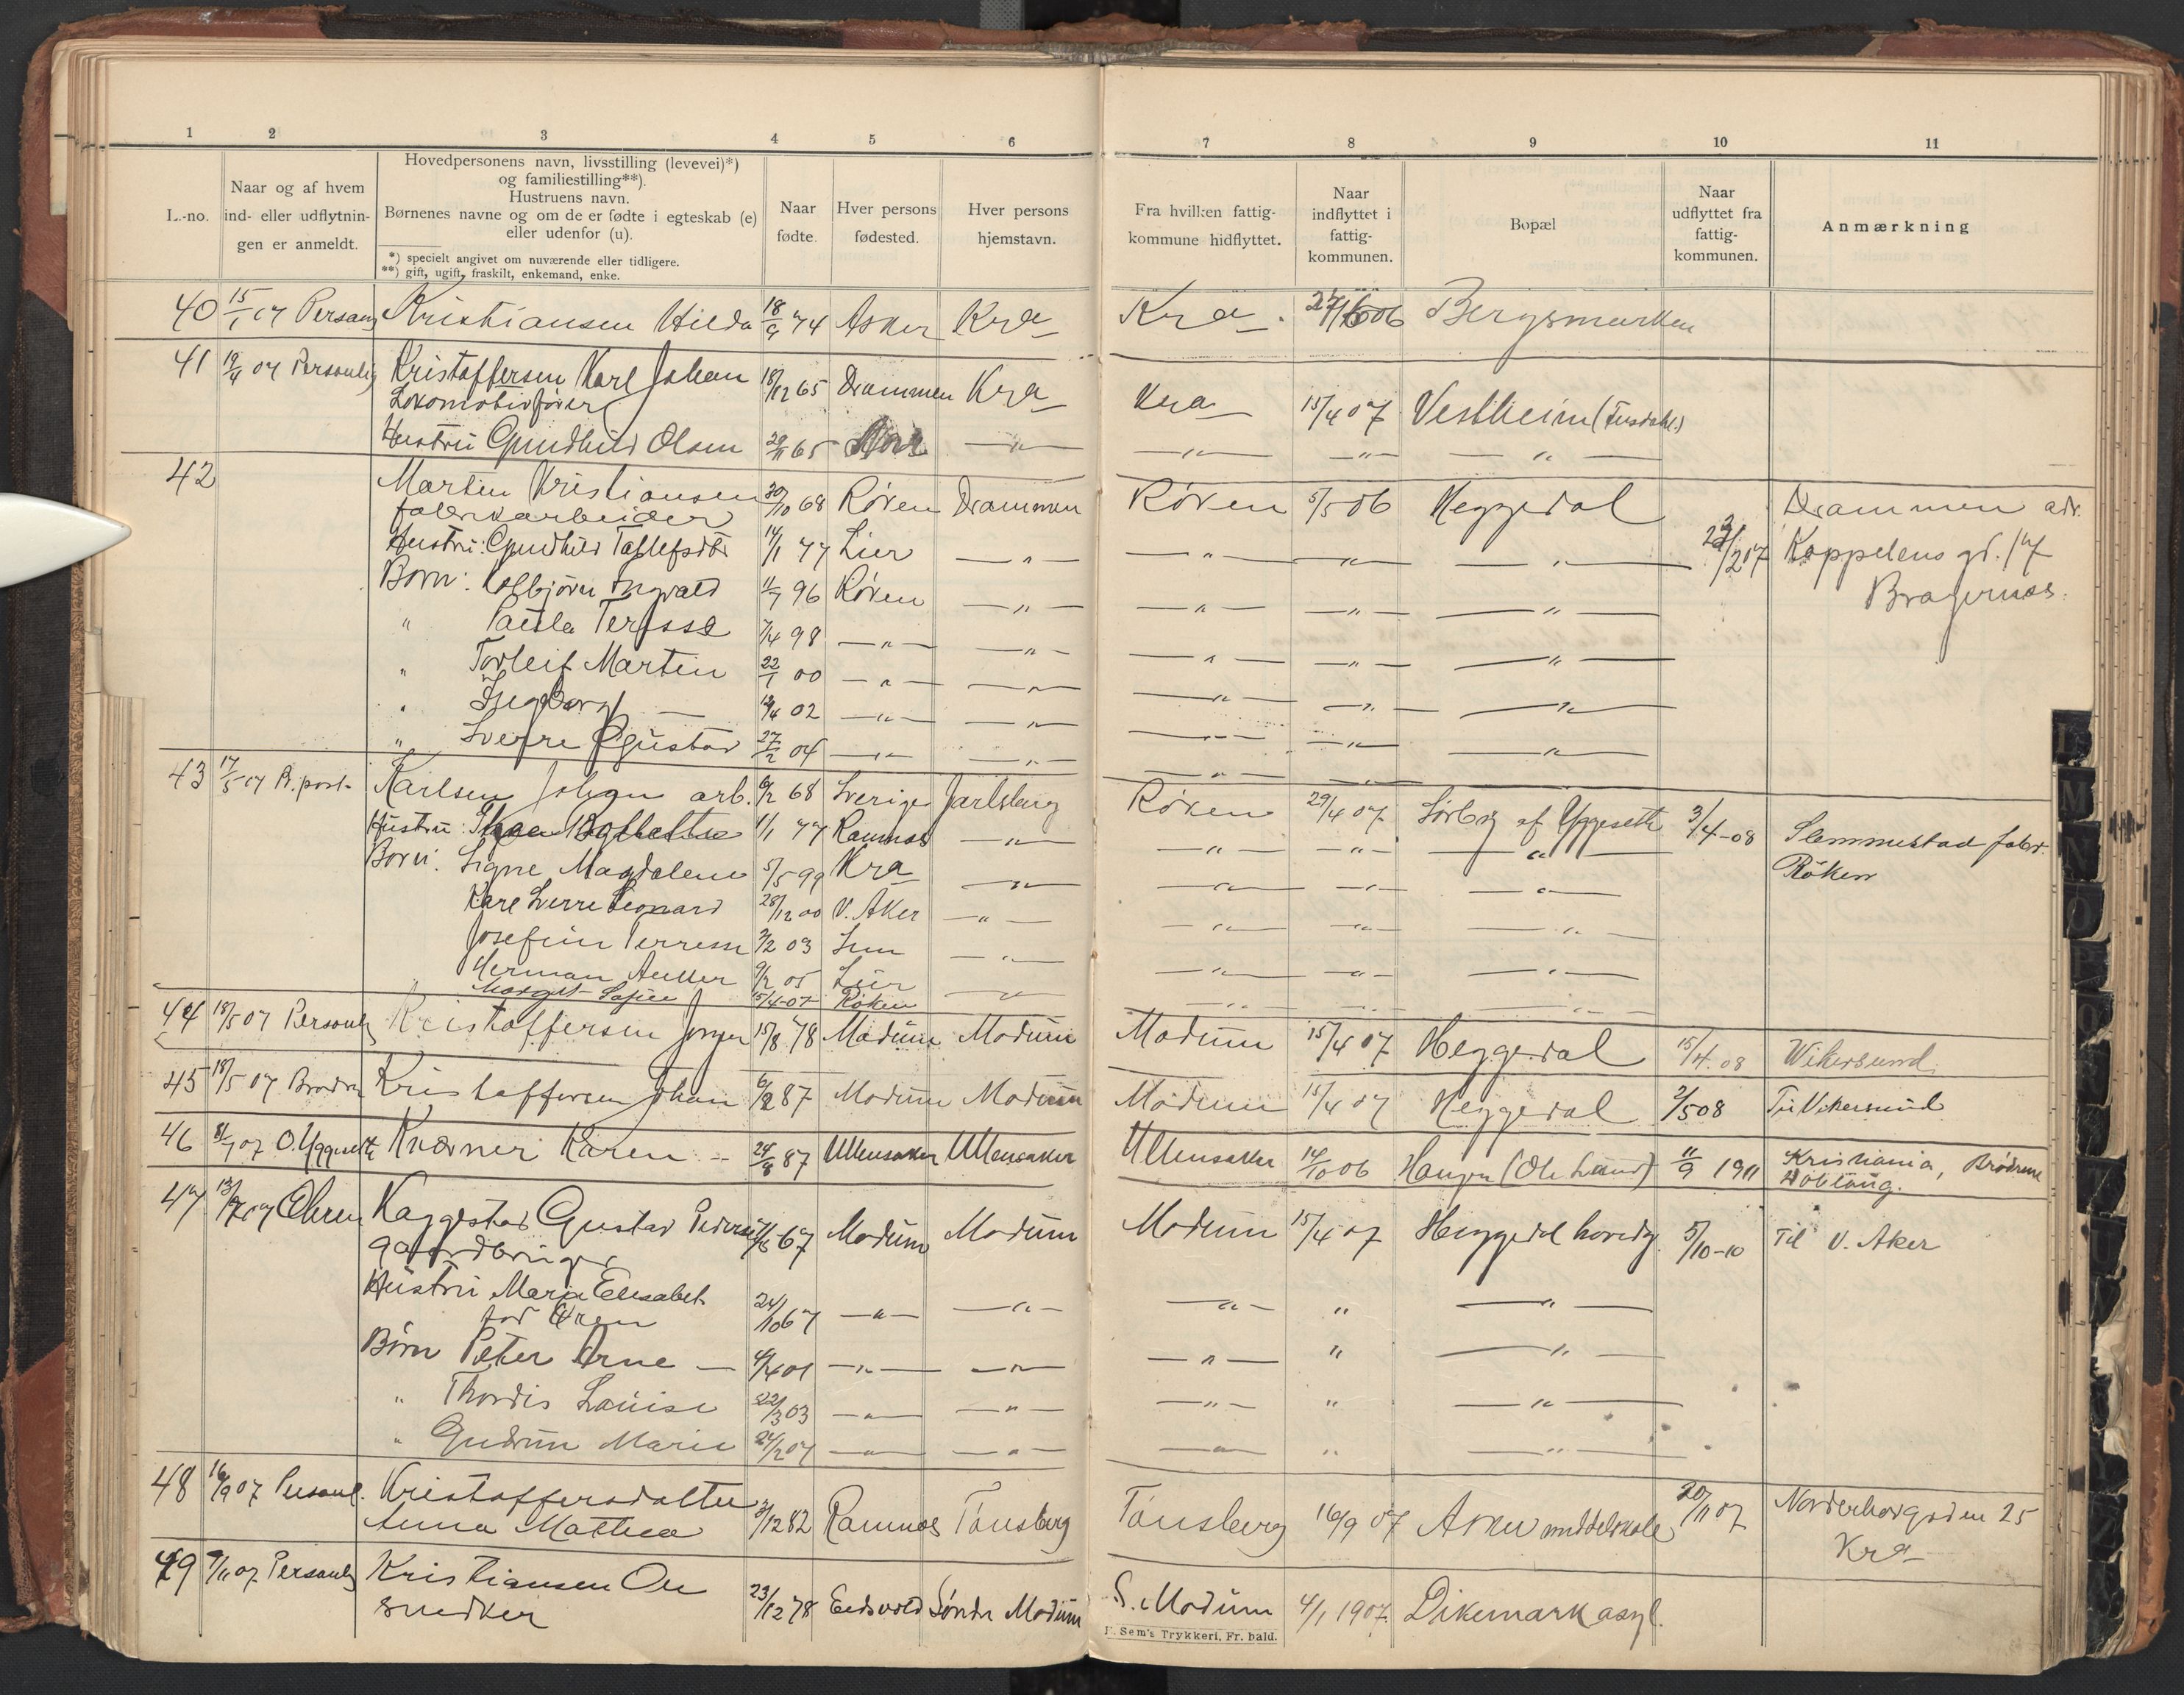 1 2 3 4 5 6 7 8 9 10 11
L.-no.
Naar og af hvem
ind- eller udflytnin-
gen er anmeldt.
Hovedpersonens navn, livsstilling (levevei)*)
og familiestilling**).
Hustruens navn.
Børnenes navne og om de er fødte i egteskab (e)
eller udenfor (u).
*) specielt angivet om nuværende eller tidligere.
**) gift, ugift, fraskilt, enkemand, enke.
Naar
fødte.
Hver persons
fødested.
Hver persons
hjemstavn.
Fra hvilken fattig-
kommune hidflyttet.
Naar
indflyttet i
fattig-
kommunen.
Bopæl
Naar
udflyttet fra
fattig-
kommunen.
Anmærkning
40 15/1 07 Kristiansen Hilda 18/9 74 Asker Kra Kra 06 Bergsmarken
41 19/4 07 Personlig Kristoffersen Karl Johan 18/12 65 Drammen Kra Kra 15/4 07 Vestheim
Lokomotivfører
Hustru Gundhild Olsen 29/11 65 — " — — " — — " — — " —
42 Martin Kristiansen 30/10 68 Røken Drammen Røken 5/5 06 Heggedal Drammen adr.
fabrikarbeider
Hustru: Gundhild 14/1 77 Lier — " — — " — — " — — " — 07 Koppelens gd. 17
Børn: Kolbjørn Ingvald 11/7 96 Røken — " — — " — — " — — " — Bragernæs.
" Paula Terese 7/4 98 — " — — " — — " — — " — — " —
" Torleif Martin 22/1 00 — " — — " — — " — — " — — " —
" Ingeborg — 02 — " — — " — — " — — " — — " —
" Sverre Gustav 27/2 04 — " — — " — — " — — " — — " —
43 17/5 07 Pr. post Karlsen Johan arb. 6/2 68 Sverige Jarlsberg Røken 29/4 07 Sørby af Yggeseth 3/4-08 Slemmestad fabr.
Hustru: 1/1 77 Ramnæs — " — — " — — " — — " — Røken
Børn: Signe Magdalene 5/5 99 Kra — " — — " — — " — — " —
Karl Sverre Leonard 28/12 00 V. Aker — " — — " — — " — — " —
Josefine 2/2 03 — " — — " — — " — — " —
Herman 9/2 05 Lier — " —
Margit Sofie 15/4-07 Røken
44 18/5 07 Personlig Kristoffersen 15/8 78 Modum Modum Modum 15/4 07 Heggedal 15/4.08 Wikersund
45 18/5 07 Kristoffersen Johan 6/2 87 Modum Modum Modum 15/4 07 Heggedal 2/5 08 Til Vikersund
46 07 O. Yggeseth Kværner Karen — 24/8 87 Ullensaker Ullensaker Ullensaker 14/10 06 Haugen (Ole Lund) 11/9 1911 Kristiania, Brødrene
47 07 Ohren Kaggestad Gustav Pedersen 67 Modum Modum Modum 15/4 07 Heggedal hovedg. 5/10-10 Til V. Aker
gaardbruger
Hustru Marja Elisabet 24/10 67 — " — — " — — " — " — " —
Børn Peter Arne — 01 — " — — " — — " — " — " —
" Thordis Louise 22/3 03 — " — — " — — " — " — " —
" Gudrun Marie 24/2 07 — " — — " — — " — " — " —
48 16/9 07 Personl. Kristoffersdatter 3/12 82 Ramnæs Tønsberg Tønsberg 16/9 07 Asker middelskole 20/11 07 25
Anna Mathea Kra
49 07 Personlig Kristiansen Ole 23/12 78 Eidsvold Søndre Modum S. Modum 4/1 1907. Dikemark asyl.
snedker
F. Sem's Trykkeri, Fr. hald.